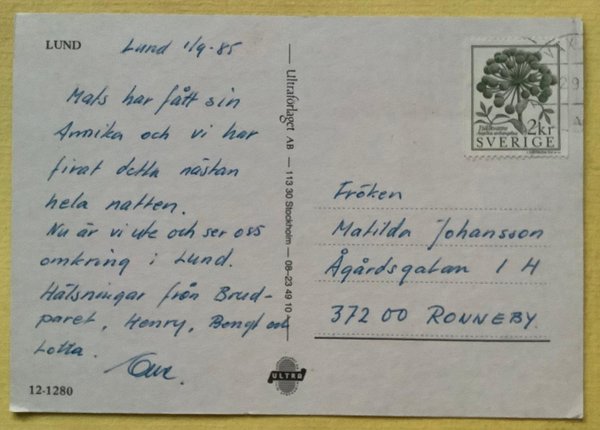 LUND
Lund 1/9-85
Mats har fått sin
Annika och vi har
firat detta nästan
hela natten.
Nu är vi ute och ser oss
omkring i Lund.
Hälsningar från Brud-
paret, Henry, Bengt och
Lotta.
12-1280
Ultraförlaget AB — 113 30 Stockholm — 08-23 49 10
ULTRA
2kr
SVERIGE
Fröken
Matilda Johansson
Ågårdsgatan 1 H
372 00 RONNEBY.